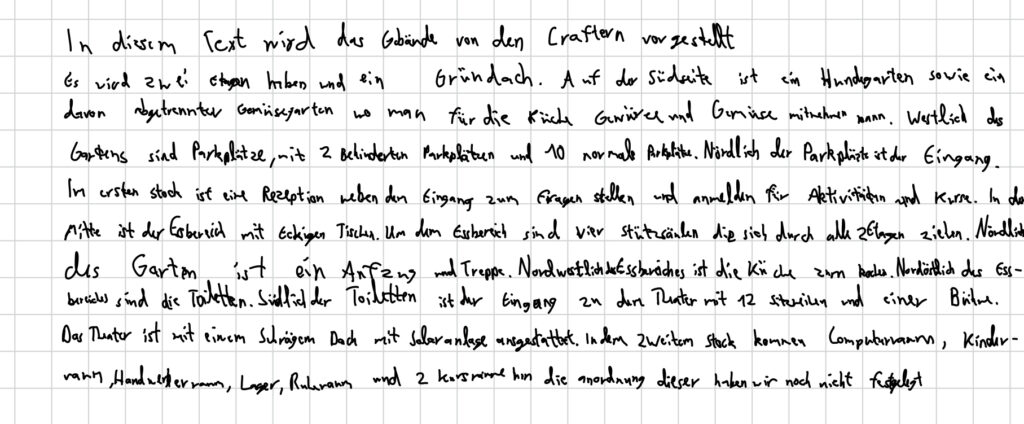 In diesem Text wird das Gebäude von den Craftern vorgestellt
Es wird zwei Etagen haben und ein Gründach. Auf der Südseite ist ein Hundegarten sowie ein
davon abgetrennter Gemüsegarten wo man für die Küche Gewürze und Gemüse mitnehmen kann. Westlich des
Gartens sind Parkplätze, mit 2 Behinderten Parkplätzen und 10 normale Parkplätze. Nördlich der Parkplätze ist der Eingang.
Im ersten stock ist eine Rezeption neben dem Eingang zum Fragen stellen und anmelden für Aktivitäten und Kurse. In der
Mitte ist der Essbereich mit Eckigen Tischen. Um dem Essbereich sind vier Stützsäulen die sich durch alle 2 Etagen ziehen. Nördlich
des Garten ist ein Aufzug und Treppe. Nordwestlich des Essbereiches ist die Küche zum kochen. Nordöstlich des Ess-
bereiches sind die Toiletten. Südlich der Toiletten ist der Eingang zu dem Theater mit 12 sitzreihen und einer Bühne.
Das Theater ist mit einem Schrägem Dach mit Solaranlage ausgestattet. In dem zweitem stock kommen Computerraum, Kinder-
raum, Handwerkerraum, Lager, Ruheraum und 2 Kursräume hin die anordnung dieser haben wir noch nicht festgelegt